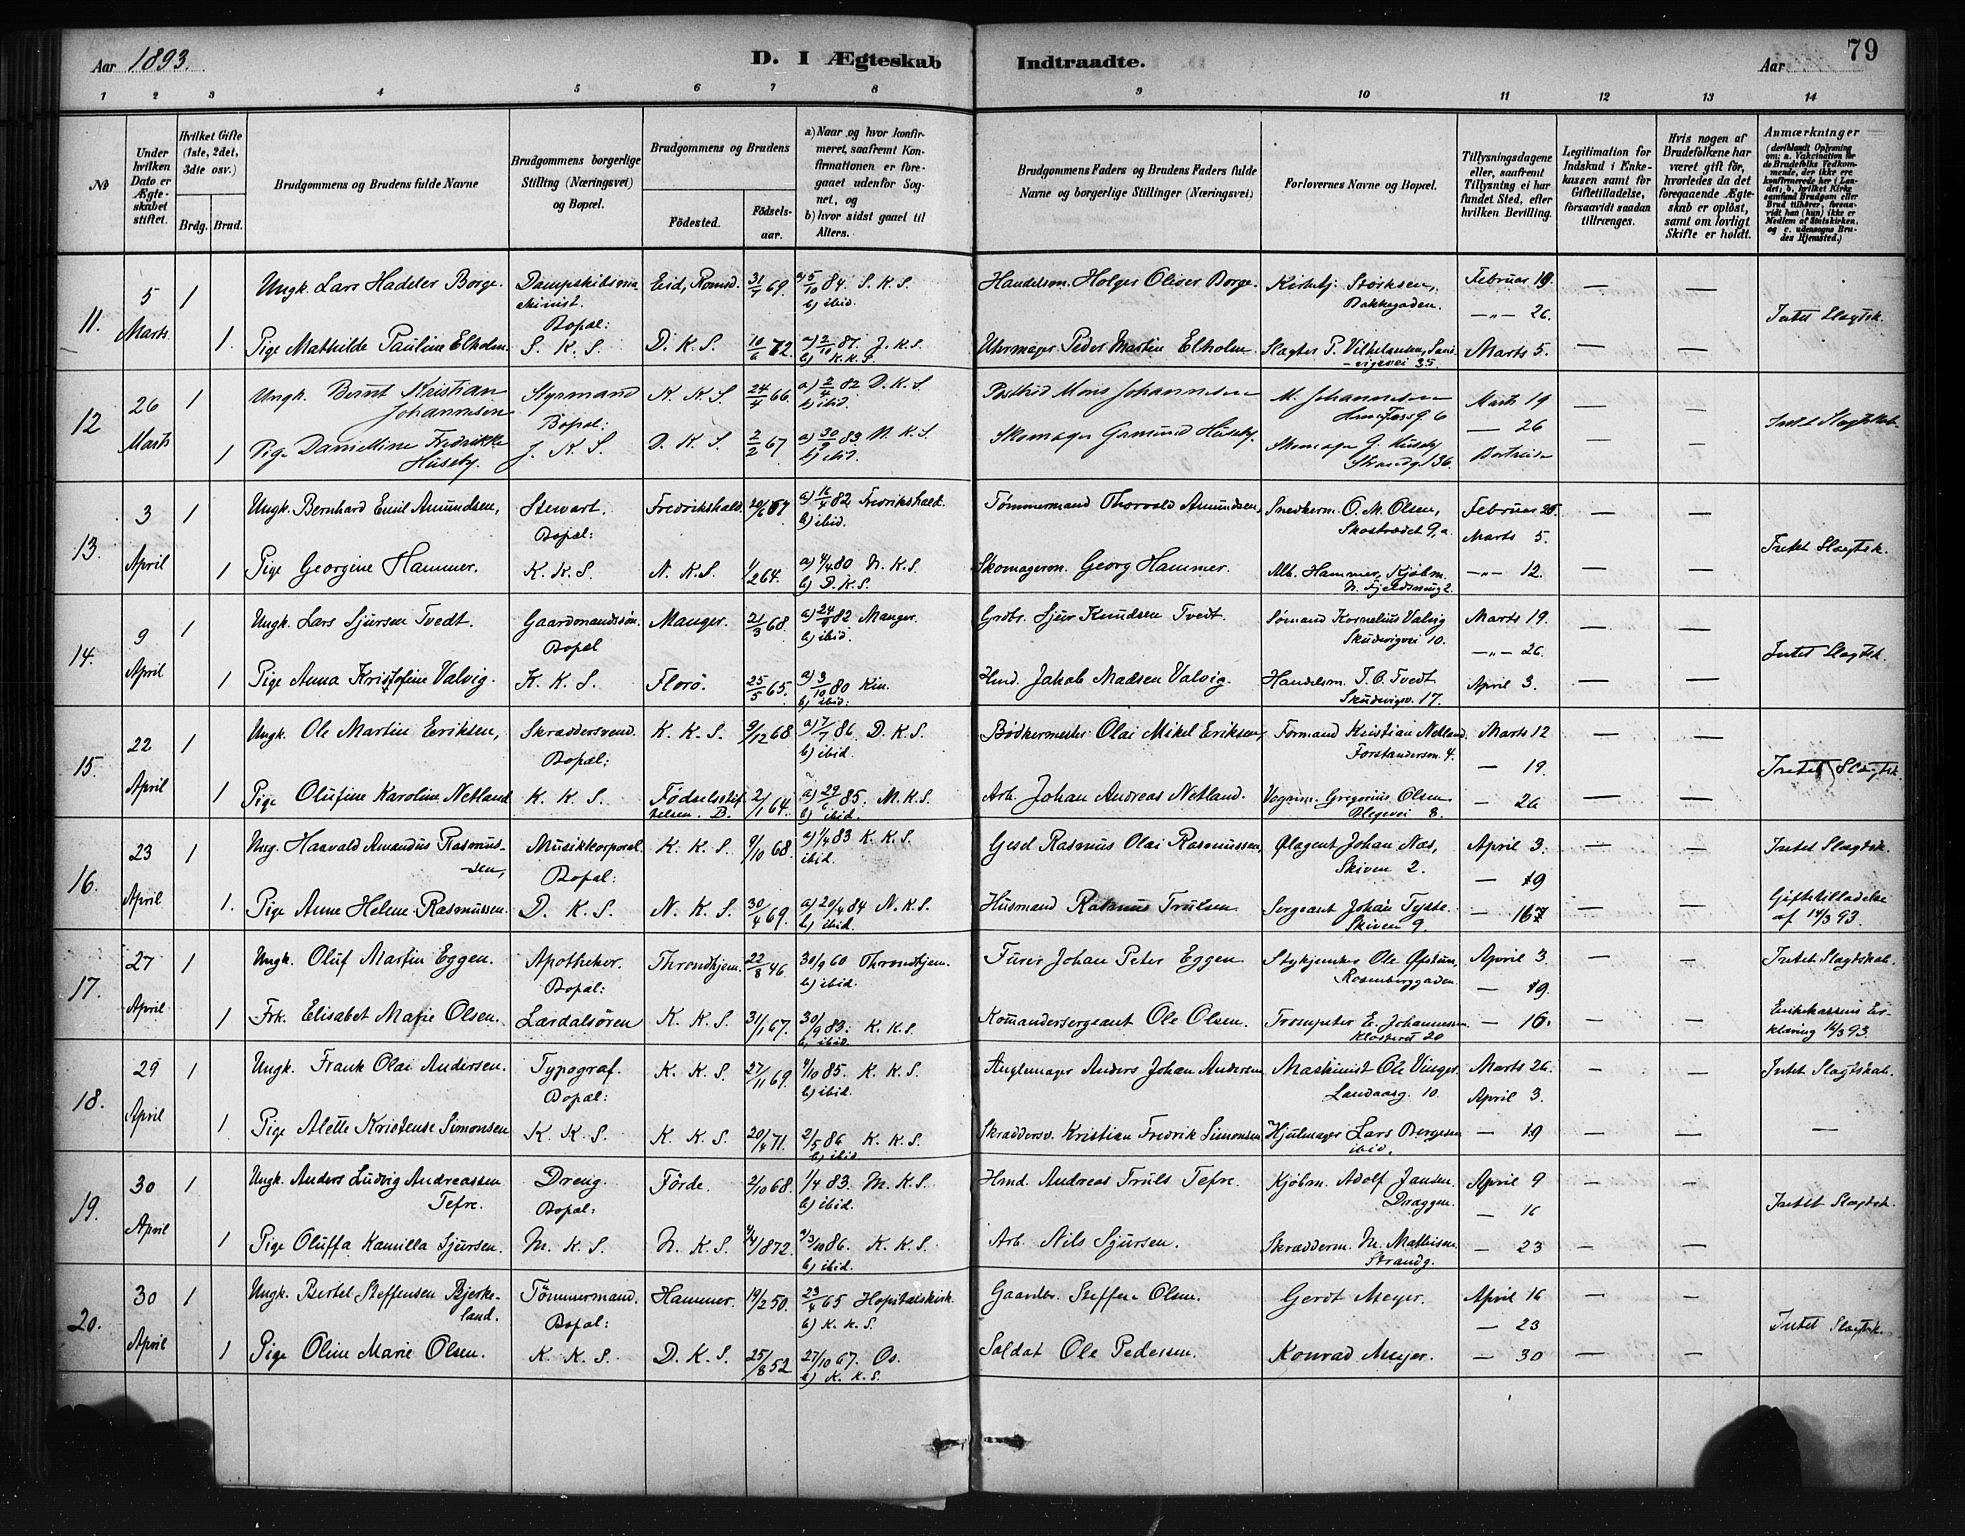 Aar 1893.
D. I Ægteskab
Indtraadte.
Aar
79
1 2 3 4 5 6 7 8 9 10 11 12 13 14
No
Under hvilken Dato er Ægteskabet stiftet.
Hvilket Gifte (1ste, 2det, 3die osv.)
Brdg. Brud.
Brudgommens og Brudens fulde Navne
Brudgommens borgerlige Stilling (Næringsvei) og Bopæl.
Brudgommens og Brudens
Fødested.
Fødselsaar.
a) Naar og hvor konfirmeret, saafremt Konfirmationen er foregaaet udenfor Sognet, og
b) hvor sidst gaaet til Alters.
Brudgommens Faders og Brudens Faders fulde Navne og borgerlige Stillinger (Næringsvei)
Forlovernes Navne og Bopæl.
Tillysningsdagene eller, saafremt Tillysning ei har fundet Sted, efter hvilken Bevilling.
Legitimation for Indskud i Enkekassen samt for Giftetilladelse, forsaavidt saadan tiltrænges.
Hvis nogen af Brudefolkene har været gift før, hvorledes da det foregaaende Ægteskab er opløst, samt om lovligt Skifte er holdt.
Anmærkninger (deriblandt Oplysning om: a. Vakcination for de Brudefolks Vedkommende, der ikke ere konfirmerede her i Landet, b. hvilket Kirkesamfund Brudgom eller Brud tilhører, forsaavidt han (hun) ikke er Medlem af Statskirken, og c. udensogns Brudes Hjemsted.)
11. 5 Marts 1 Ungk. Lars Hadeler Borge. Dampskibsmaskinist. Eid, Romsd. 31/7 69. a) 5/10 84. S. K. S. b) ibid. Handelsm. Holger Oliver Borge. Kirketj. Störksen, Bakkegaden. Februar 19. — — Intet Slagtsk.
Bopæl: —"— 26.
1. Pige Mathilde Pauline Elholm. S. K. S. D. K. S. 10/6 72. a) 2/10 87. J. K. S. b) K. K. S. Uhrmager Peder Martin Elholm Slagter P. Vilhelmsen, Sandvigevei 35. Marts 5. — —
12 26 Marts 1 Ungk. Bernt Kristian Johannesen Styrmand N. K. S. 24/4 66. a) 2/4 82 D. K. S. b) ibid. Postbud Mons Johannesen M. Johannesen Marts 19 — — Intet Slagtskab.
Bopæl: — 26
1 Pige Danielline Fredrikke Huseby. J. K. S. D. K. S. 2/2 67 a) 30/9 83 N. K. S. b) ibid. Skomager Gudmund Huseby. Skomager G. Huseby Strandg. 136. — —
13. 3 April 1 Ungk. Bernhard Emil Amundsen, Stewart. Fredrikshald. 20/6 67 a) 16/4 82 Fredrikshald. b) ibid. Tømmermand Thorvald Amundsen, Snedkerm. O. M. Olsen, Skostrædet 9, a. Februar 26. — — Intet Slagtsk.
Bopæl: Marts 5.
1 Pige Georgine Hammer. K. K. S. N. K. S. 1/2 64. a) 4/4 80 N. K. S. b) D. K. S. Skomagerm. Georg Hammer. Alb. Hammer, Kjøbm. N. Fjeldsmug 2. —"— 12. — —
14. 9 April 1 Ungk. Lars Sjursen Tvedt. Gaardmandssøn. Manger. 21/3 68. a) 24/9 82 Manger. b) ibid. Grdbr. Sjur Knudsen Tvedt. Sømand Kornelius Valvig Skudevigvei 10. Marts 19. — — Intet Slagtsk.
Bopæl —"— 26.
1 Pige Anna Kristofine Valvig. K. K. S. Florö. 25/5 65. a) 3/10 80 Kin. b) ibid. Hmd. Jakob Madsen Valvig. Handelsm. T. O. Tvedt Skudevigsv. 17. April 3. — —
15. 22 April 1 Ungk. Ole Martin Eriksen, Skræddersvend. K. K. S. 9/12 68 a) 7/7 86. D. K. S. b) ibid. Bødkermester Olai Mikel Eriksen, Formand Kristian Netland. Forstandersm. 4. Marts 12 — — Intet Slagtsk.
Bopæl: — 19.
1 Pige Olufine Karoline Netland K. K. S. Fødselsstiftelsen. B. 2/1 64. a) 29/6 85. M. K. S. b) ibid. Arb. Johan Andreas Netland. Vognm. Gregorius Olsen Blegevei 8. — 26 — —
16. 23 April 1 Ung. Haavald Amandus Rasmussen, Musikkorporal. K. K. S. 9/10 68. a) 1/4 83 K. K. S. ibid. Gesel Rasmus Olai Rasmussen, Ølagent Johan Næs, Skiven 2. April 3. — — Intet Slagtsk.
Bopæl: — 9
1. Pige Anne Helene Rasmussen. D. K. S. N. K. S. 30/4 69. a) 20/4 84 N. K. S. b) ibid. Husmand Rasmus Trulsen Sergeant Johan Tysse Skiven 9. — 16 — — Giftetilladelse af 14/3 93.
17. 27 April 1 Ungk. Oluf Martin Eggen. Apotheker. Throndhjem. 22/8 46. 30/9 60 Throndhjem. b) ibid. Furer Johan Peter Eggen Stykjunker Ole Ofstum, Rosenberggaden April 3. — — Intet Slagtskab.
Bopæl: — 9.
1 Frk. Elisabet Marie Olsen. Lærdalsören K. K. S. 31/1 67. 30/9 83. K. K. S. b) ibid Kommandersergeant Ole Olsen. Trompeter E. Johannesen Klosteret 20 — 16. — — Enkekassens Erklæring 14/3 93.
18. 29 April 1 Ungk. Frank Olai Andersen. Typograf. K. K. S. 27/11 69. 4/10 85. K. K. S. b) ibid. Anglemager Anders Johan Andersen Maskinist Ole Vinger. Landaasg. 10. Marts 26. — — Intet Slagtskab.
Bopæl: April 3.
1. Pige Alette Kristense Simonsen K. K. S. K. K. S. 20/4 71. 2/5 86 K. K. S. b) ibid Skræddersv. Kristian Fredrik Simonsen Hjulmager Lars Bergesen ibid. — 9 — — —
19. 30 April 1 Ungk. Anders Ludvig Andreassen Tefre. Dreng. Förde. 2/10 68. 1/4 83. M. K. S. b) ibid. Hmd. Andreas Truls Tefre. Kjöbm. Adolf Jansen Dræggen. April 9 — — Intet Slagtsk.
Bopæl: — 16
1 Pige Oluffa Kamilla Sjursen. M. K. S. N. K. S. 4/4 1872. a) 3/10 86. K. K. S. b) ibid. Arb. Nils Sjursen. Skrædderm. M. Mathisen. Strandg. — 23 — —
20. 30 April 1 Ungk. Bertel Steffensen Bjerkeland. Tømmermand. Hammer. 19/2 50. 23/4 65 Hospitalskirk. b) K. K. S. Gaardbr. Steffen Olsen. Gerdt Meyer. April 16 — — Intet Slagtsk.
Bopæl: — 23
1 Pige Oline Marie Olsen. K. K. S. D. K. S. 25/8 52 27/10 67. Os. b) K. K. S. Soldat Ole Pedersen. Konrad Meyer. — 30 — —